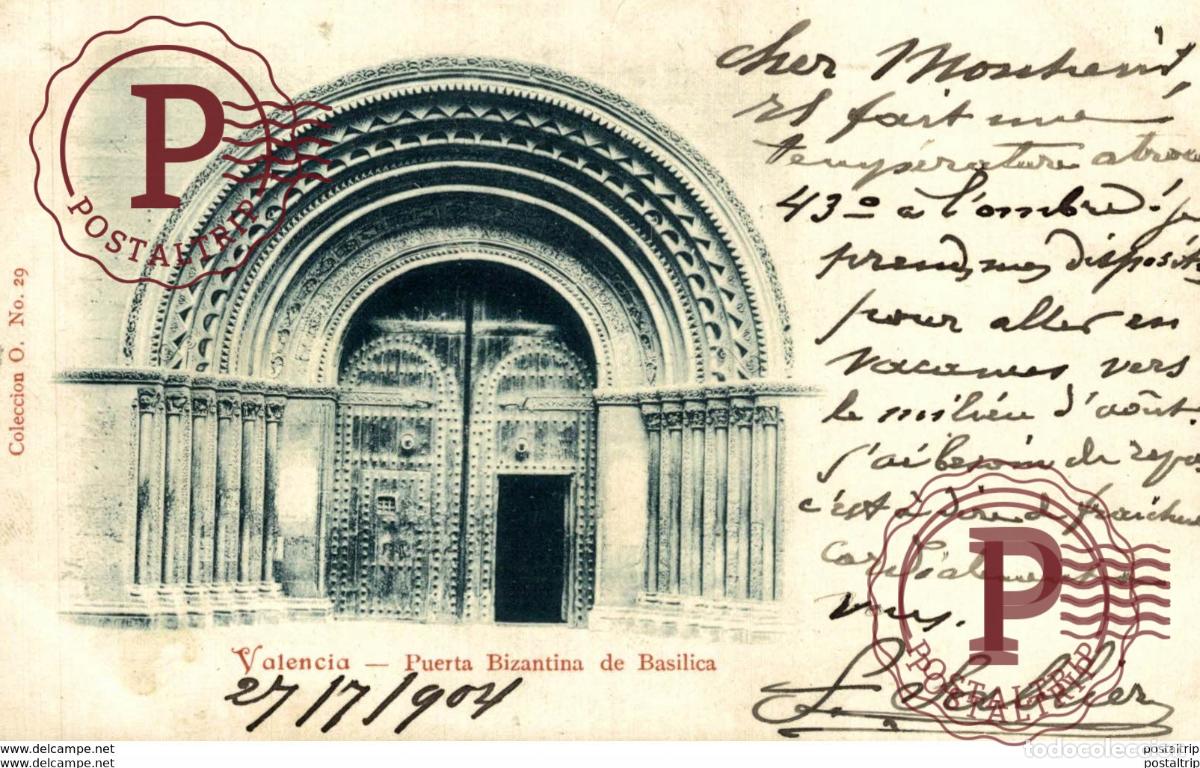 P
POSTALTRIP
Coleccion O. No. 29
cher
Il fait une
température atroce
43º à l'ombre! je
prends mes disposit
pour aller en
vacances vers
le milieu d'août.
j'ai besoin de repo
c'est à dire de fraicheu
cordialement
Valencia — Puerta Bizantina de Basilica
27/7/904
P
POSTALTRIP
POSTALTRIP
todocoleccion
www.delcampe.net
postaltrip
www.delcampe.net
postaltrip